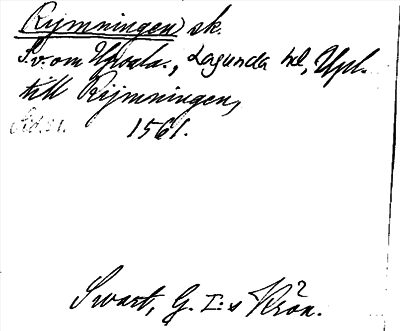 Rijmningen sk.
S.v. om Upsala., Lagunda hd, Upl.
till Rijmningen,
1561.
Swart, G. I:s Krön.